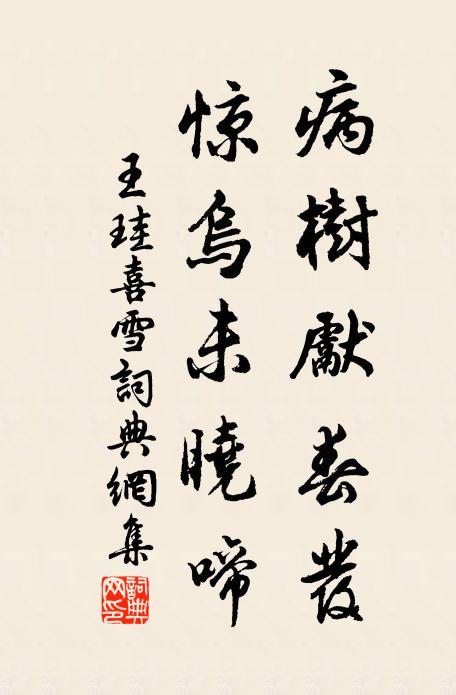 病樹獻春發
惊烏未曉啼
王珪喜雪詞典網集
詞典网印